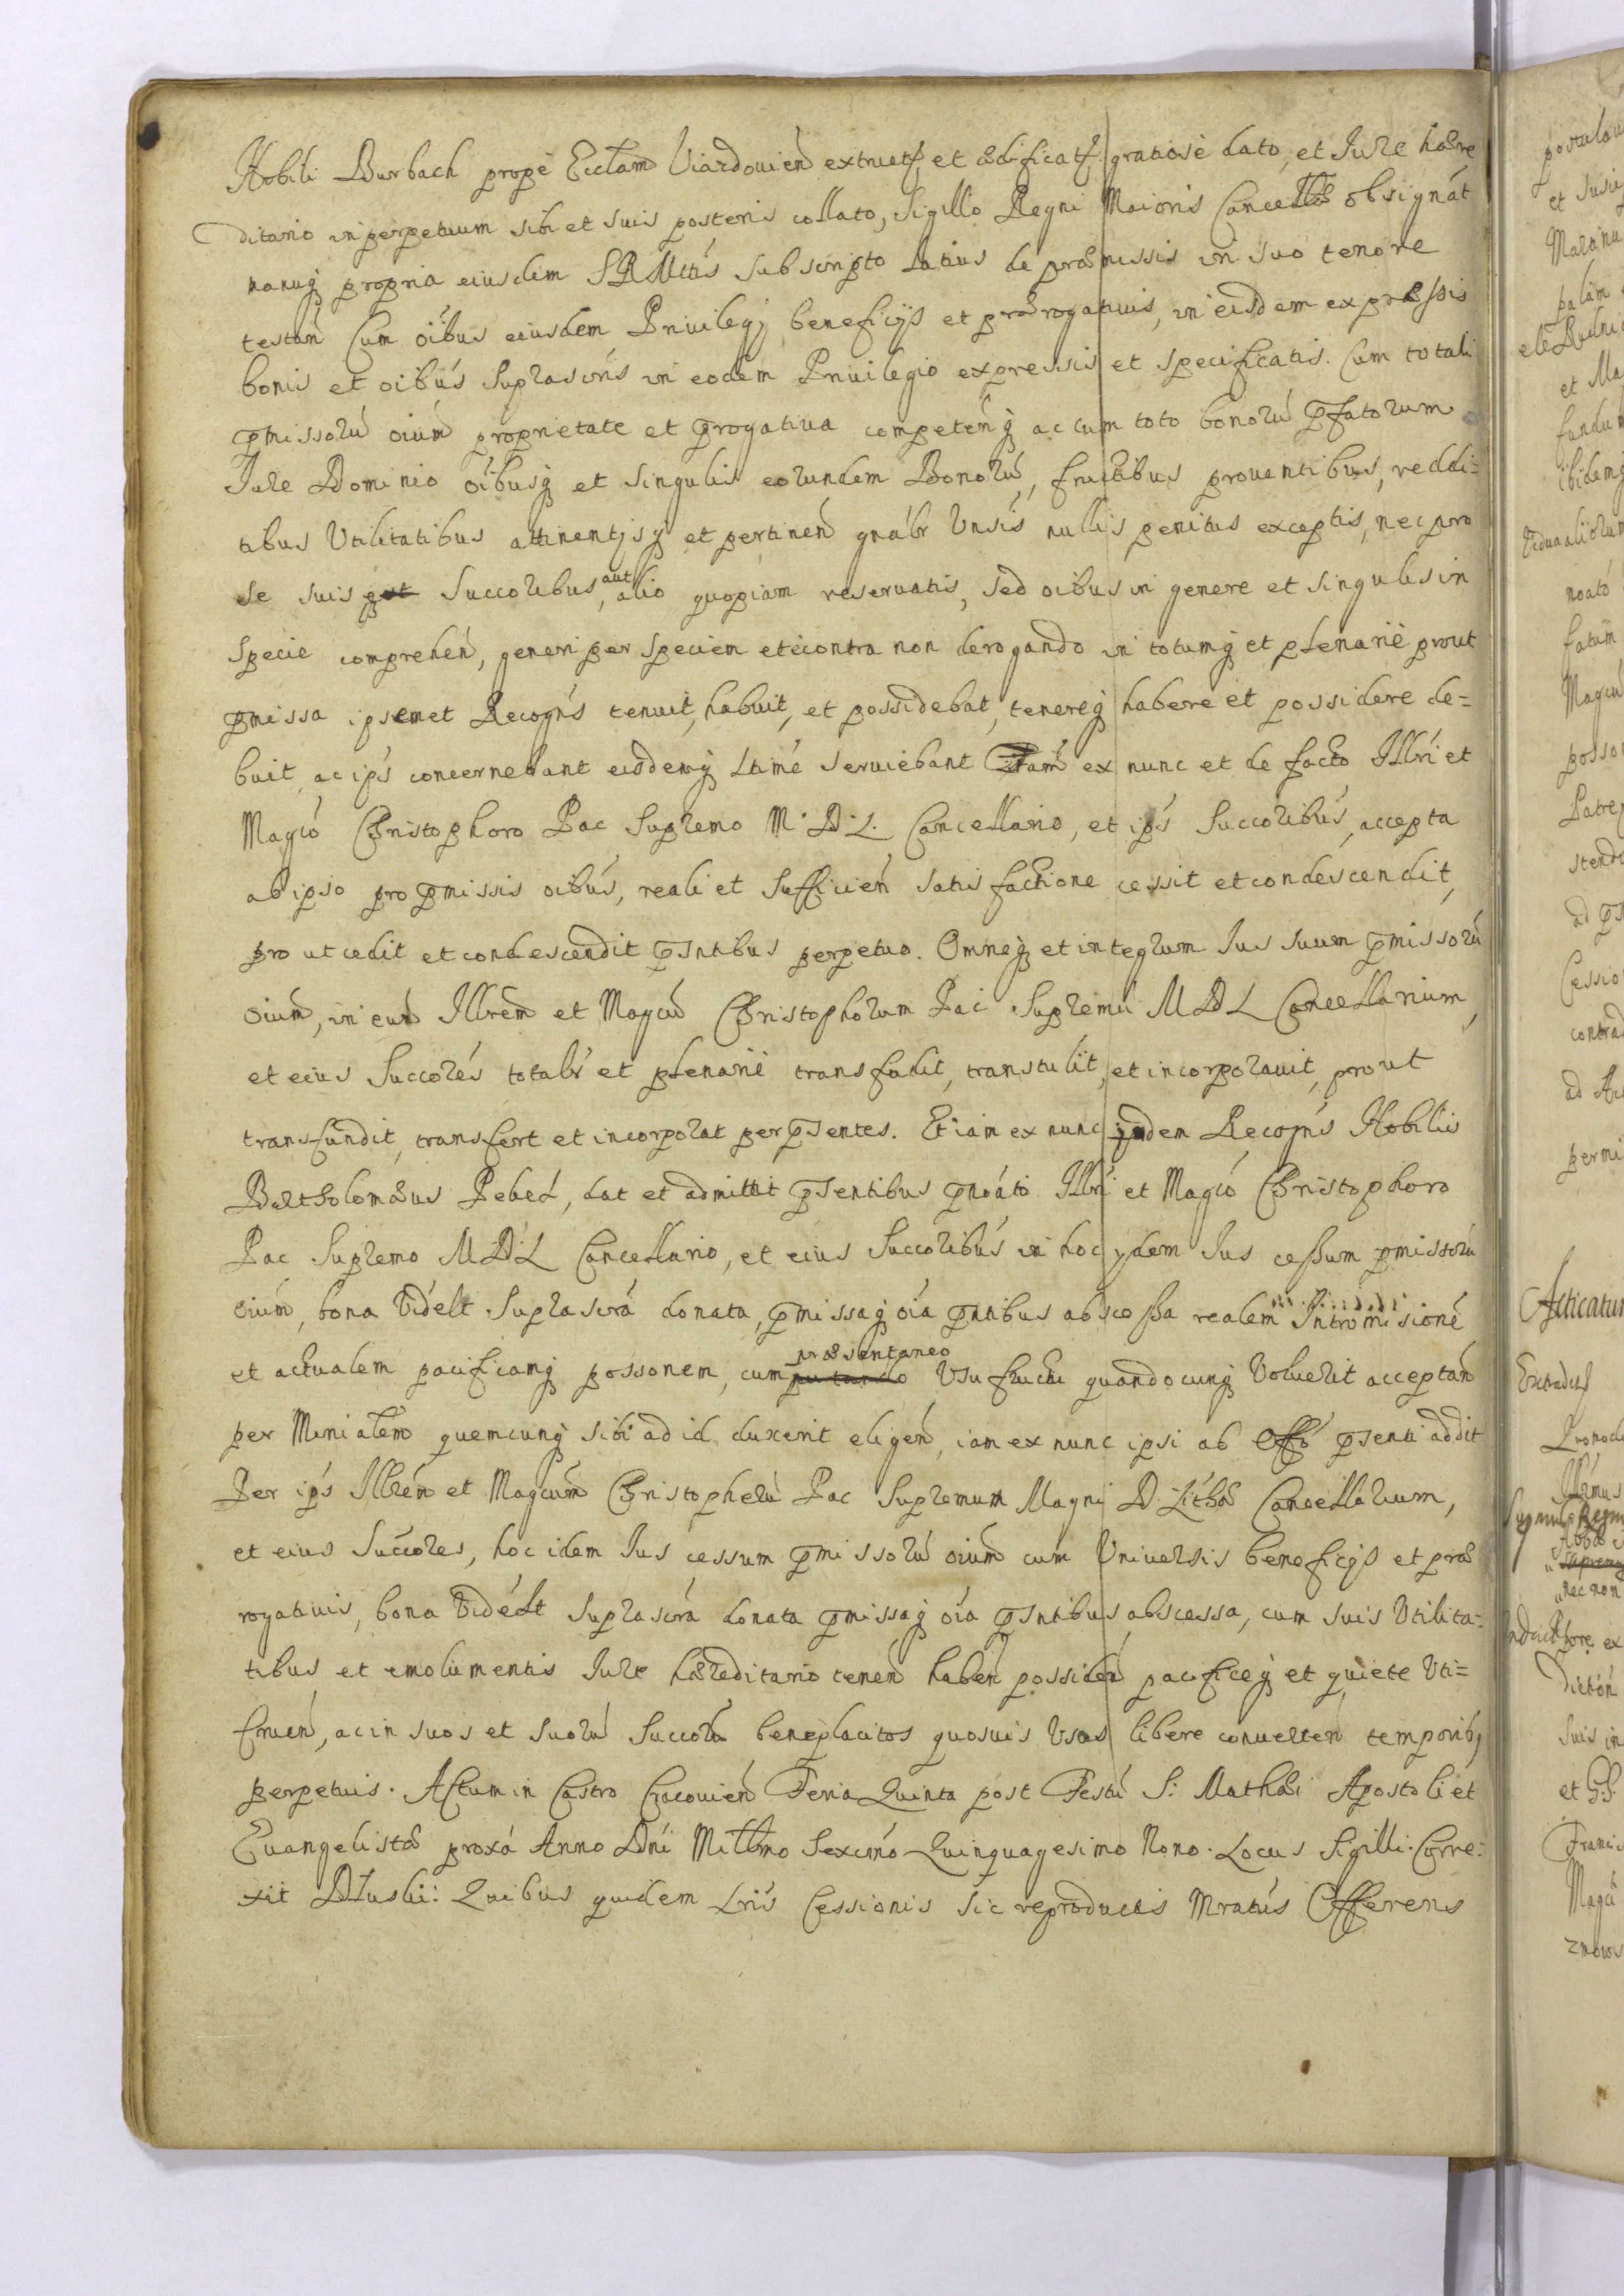 Nobili Burbach propè Ecclam Viazdovień extruct et ædificat gratiosè dato, et Jure hære
ditario in perpetuum sibi et suis posteris collato, Sigillo Regni Maioris Cancellæ obsignát
manuq propria eiusdem SRMttis subscripto latius de præmissis in suo tenore
testań Cum oibus eiusdem Privilegÿ beneficijs et prærogativis, in eisdem expressis
bonis et oibús suprascris in eodem Privilegio expressis et specificatis. Cum totali
pmissorú oium proprietate et progativa competenq ac cum toto bonorú pfatorum
Jure Dominio oibusq et singulis eorundem Bonorú, fructibus proventibus, reddi=
tibus Utilitatibus attinentÿsq et pertineń gnalr Unsis nullis penitus exceptis, nec pro
se suis Succoribus, aut alio quopiam reservatis, sed oibus in genere et singulis in
specie compreheń, generi per speciem et è contra non derogando in totumq et plenariè prout
pmissa ipsemet Recogns tenuit, habuit, et possidebat, tenereq habere et possidere de=
buit, ac ipś concernebant eisdemq ltimé serviebant Etam ex nunc et de facto Illri et
Magco Christophoro Pac Supremo M. D. L. Cancellario, et ipś Succoribús, accepta
ab ipso pro pmissis oibús, reali et sufficień satisfactione cessit et condescendit,
pro ut cedit et condescendit psntibus perpetuo. Omneq et integrum Jus suum pmissorú
oium, in eum Illrem et Magcum Christophorum Pac Supremú M D L Cancellarium,
et eius Succorés totalr et plenariè transfudit, transtulit, et incorporavit, prout
transfundit, transfert et incorporat per psentes. Et iam ex nunc idem Recogns Nobilis
Bartholomæus Pebel, dat et admittit psentibus pnoato Illri et Magco Christophoro
Pac Supremo M D L Cancellario, et eius Succoribús in hoc idem Jus cessum pmissorú
oium, bona Vidélt Suprascrá donata, pmissaq oia pntibus abscessa realem Intromisioné
et actualem pacificamq possonem, cum præsentaneo Usufructu quandocunq Voluerit acceptań
per Minialem quemcunq sibi ad id duxerit eligeń, iam ex nunc ipsi ab Offo psenti addit
Per ipś Illrem et Magcum Christophorú Pac Supremum Magni D Lithæ Cancellarium,
et eius Succores, hoc idem Jus cessum pmissorú oium cum Universis beneficijs et præ
rogativis, bona Vidélt Suprascrá donata pmissaq oia psntibus abscessa, cum suis Utilita=
tibus et emolumentis Jure hæreditario teneń habeń possideń pacificeq et quiete Uti=
frueń, ac in suos et suorú Succorú beneplacitos quosvis Usus libere converteń temporibq
perpetuis. Actum in Castro Cracovień Feria Quinta post Festú S: Mathæi Apostoli et
Evangelistæ proxá Anno Dni Millmo Sexcmo Quinquagesimo Nono. Locus Sigilli. Corre:
xit Dłuski: Quibus quidem Lris Cessionis sic reproductis Mratus Offerens